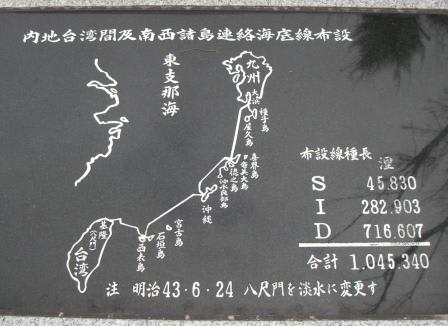 内地台湾間及南西諸島連絡海底線布設
東支那海
九州
大浜
種子島
屋久島
喜界島
奄美大島
徳之島
沖永良部島
沖縄
宮古島
石垣島
西表島
基隆
(八尺門)
台湾
布設線種長 浬
S 45.830
I 282.903
D 716.607
合計 1.045.340
注 明治43.6.24 八尺門を淡水に変更す